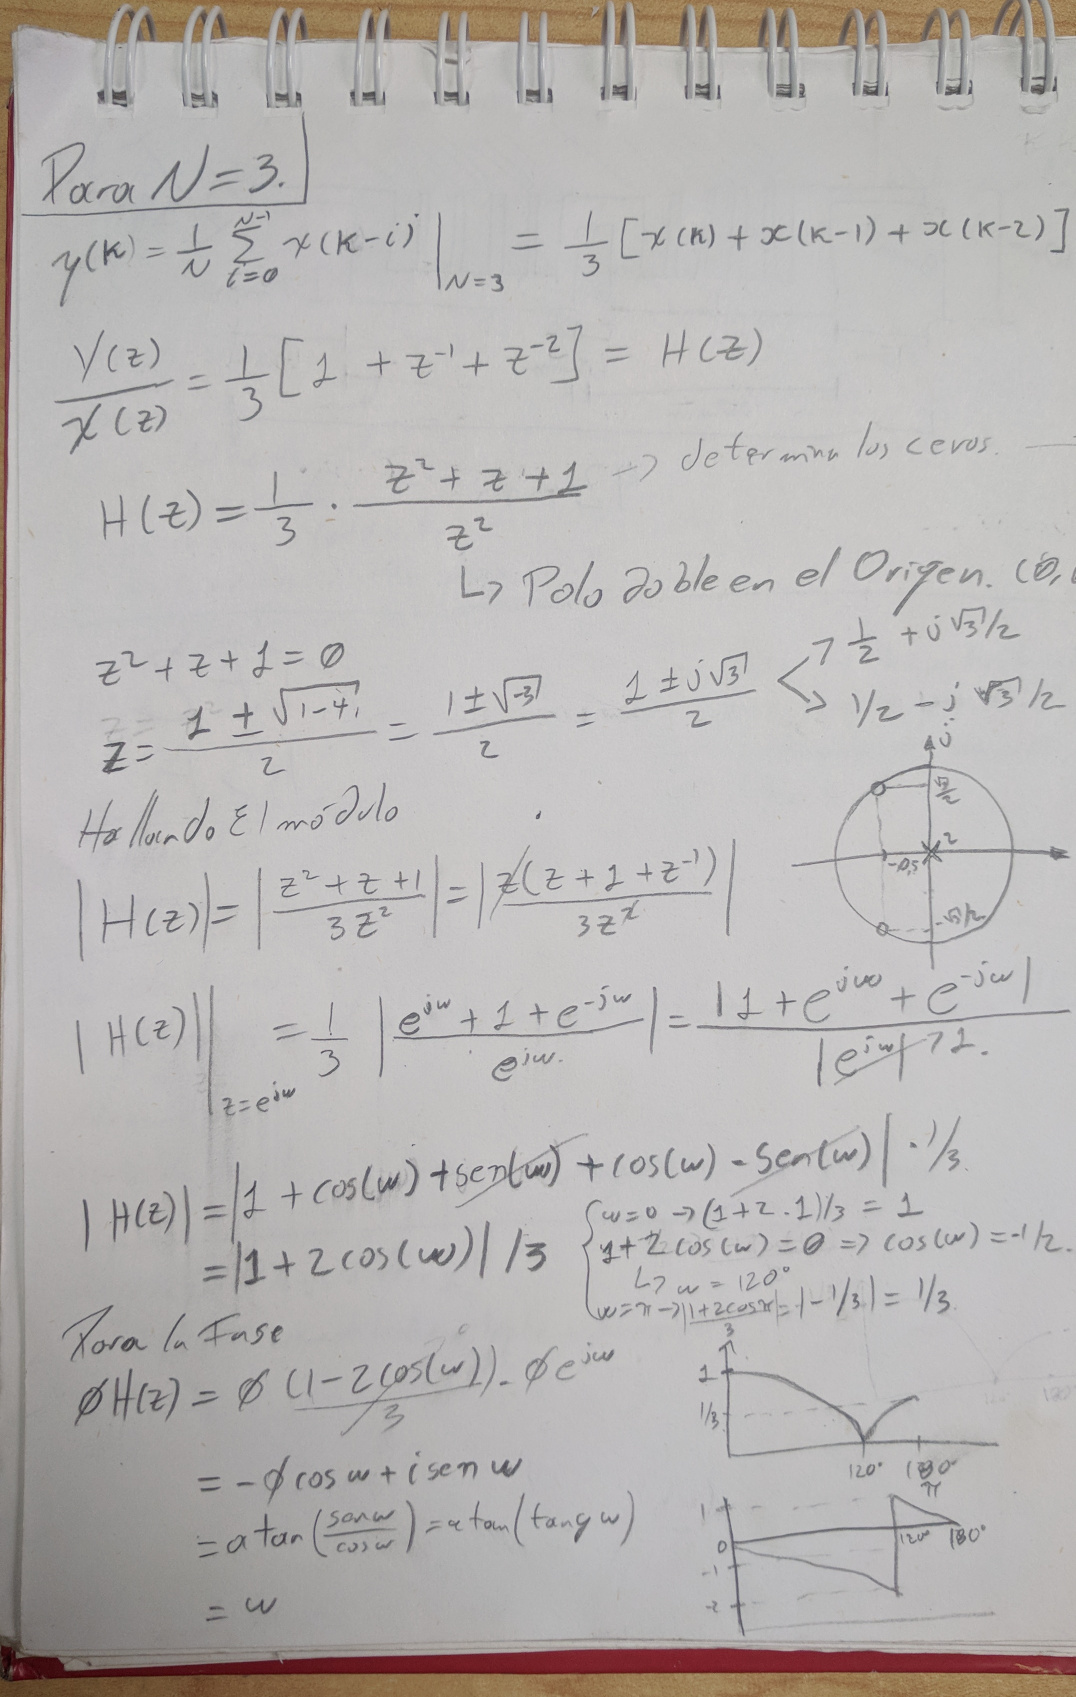 Para N=3.
y(k) = 1/N Σ_{i=0}^{N-1} x(k-i) |_{N=3} = 1/3 [x(k) + x(k-1) + x(k-2)]
Y(z)/X(z) = 1/3 [1 + z^-1 + z^-2] = H(z)
H(z) = 1/3 · (z^2 + z + 1)/z^2 → determina los ceros.
↳ Polo doble en el Origen. (0,
z^2 + z + 1 = 0
z = (1 ± √(1-4))/2 = (1 ± √-3)/2 = (1 ± j√3)/2
1/2 + j√3/2
1/2 - j √3/2
j
√3/2
2
-0,5
-√3/2
Hallando El módulo
|H(z)| = |(z^2 + z + 1)/(3z^2)| = |z(z + 1 + z^-1)/(3z^2)|
|H(z)| |_{z=e^{jw}} = 1/3 |(e^{jw} + 1 + e^{-jw})/e^{jw}| = |1 + e^{jw} + e^{-jw}|/|e^{jw}| → 1.
|H(z)| = |1 + cos(w) + sen(w) + cos(w) - sen(w)| · 1/3
= |1 + 2cos(w)| /3
w=0 → (1+2·1)/3 = 1
1+2cos(w) = 0 ⇒ cos(w) = -1/2.
↳ w = 120°
w=π → |1+2cosπ|/3 = |-1/3| = 1/3
Para la Fase
∅H(z) = ∅ (1-2cos(w))/3 - ∅e^{jw}
= -∅ cos w + i sen w
= atan(sen w/cos w) = atan(tang w)
= w
1
1/3
120° 180°
π
1
0
-1
-2
120° 180°